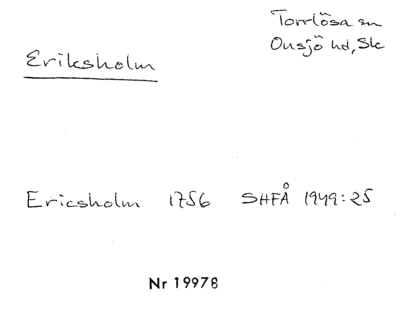 Torrlösa sn
Onsjö hd, Sk
Eriksholm
Ericsholm 1756 SHFÅ 1949:25
Nr 19978